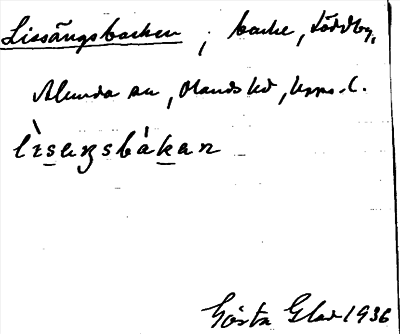 Lissängsbacken ; backe, Söderby,
Alunda sn, Olands hd, Upps. l.
lìseŋsbákan
Gösta Glad 1936